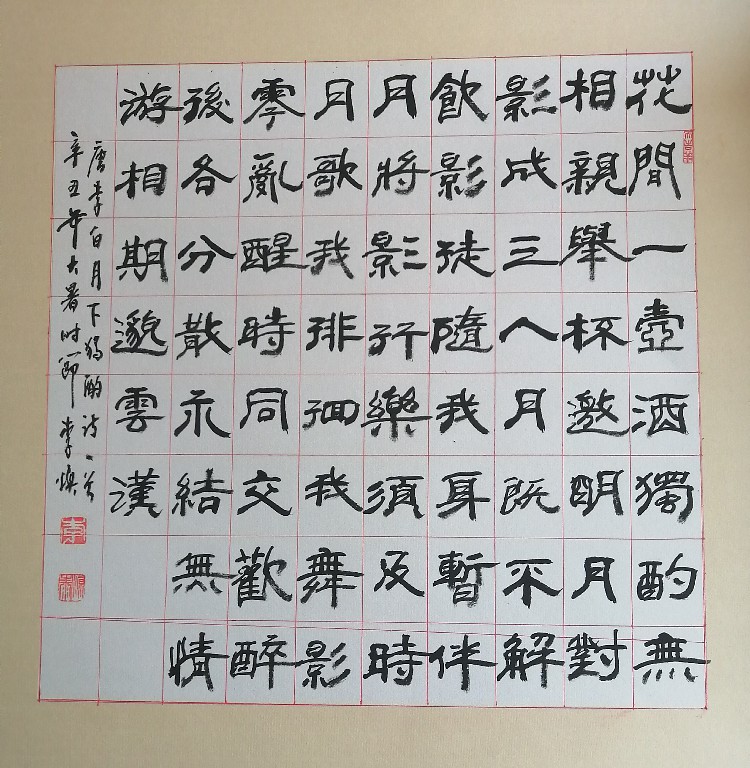 花間一壺酒獨酌無
相親舉杯邀明月對
影成三人月既不解
飲影徒隨我身暫伴
月將影行樂須及時
月歌我徘徊我舞影
零亂醒時同交歡醉
後各分散永結無情
游相期邈雲漢
唐李白月下獨酌詩一首
辛丑年大暑时節李煥